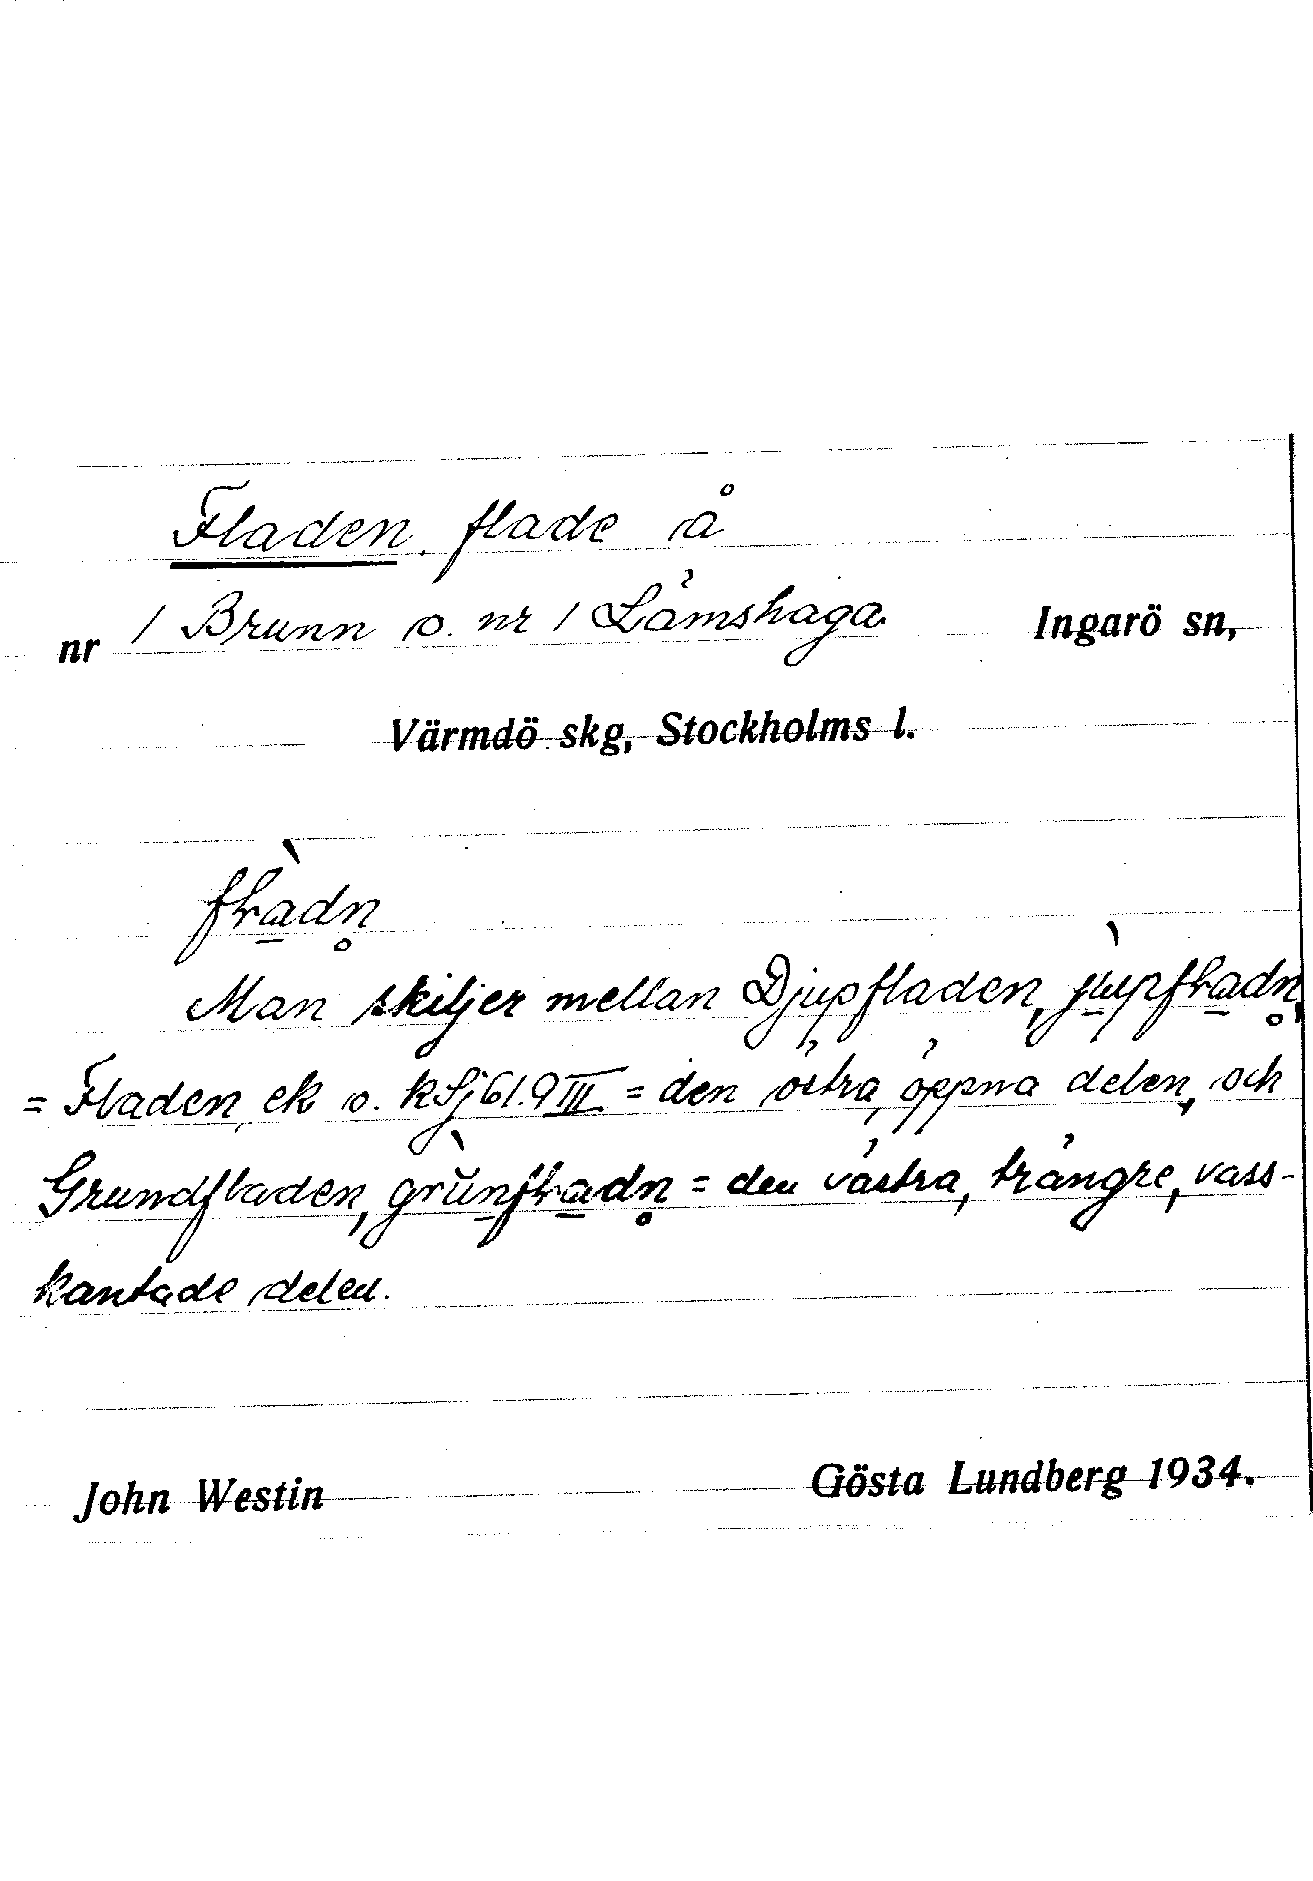 Fladen, flade å
nr 1 Brunn o. nr 1 Lämshaga. Ingarö sn,
Värmdö skg, Stockholms l.
fɫàdn̥
Man skiljer mellan Djupfladen, jùpfɫadn̥,
= Fladen, ek o. kSj 61. 9 III = den östra, öppna delen, och
Grundfladen, grùnfɫadn̥ = den västra, trängre, vass-
kantade delen.
John Westin Gösta Lundberg 1934.